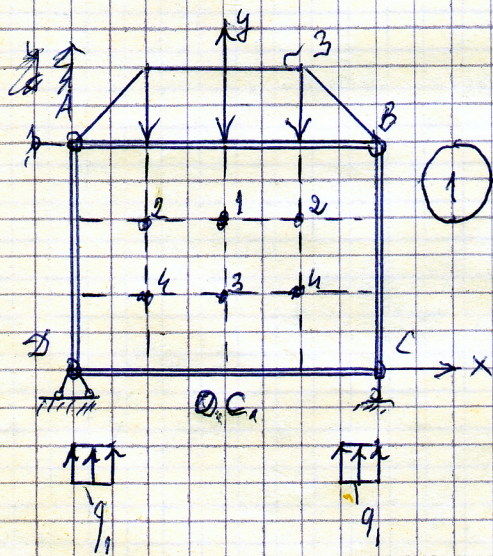 y
3
A
B
1
2 1 2
4 3 4
D
C
x
О.С.
q₁
q₁